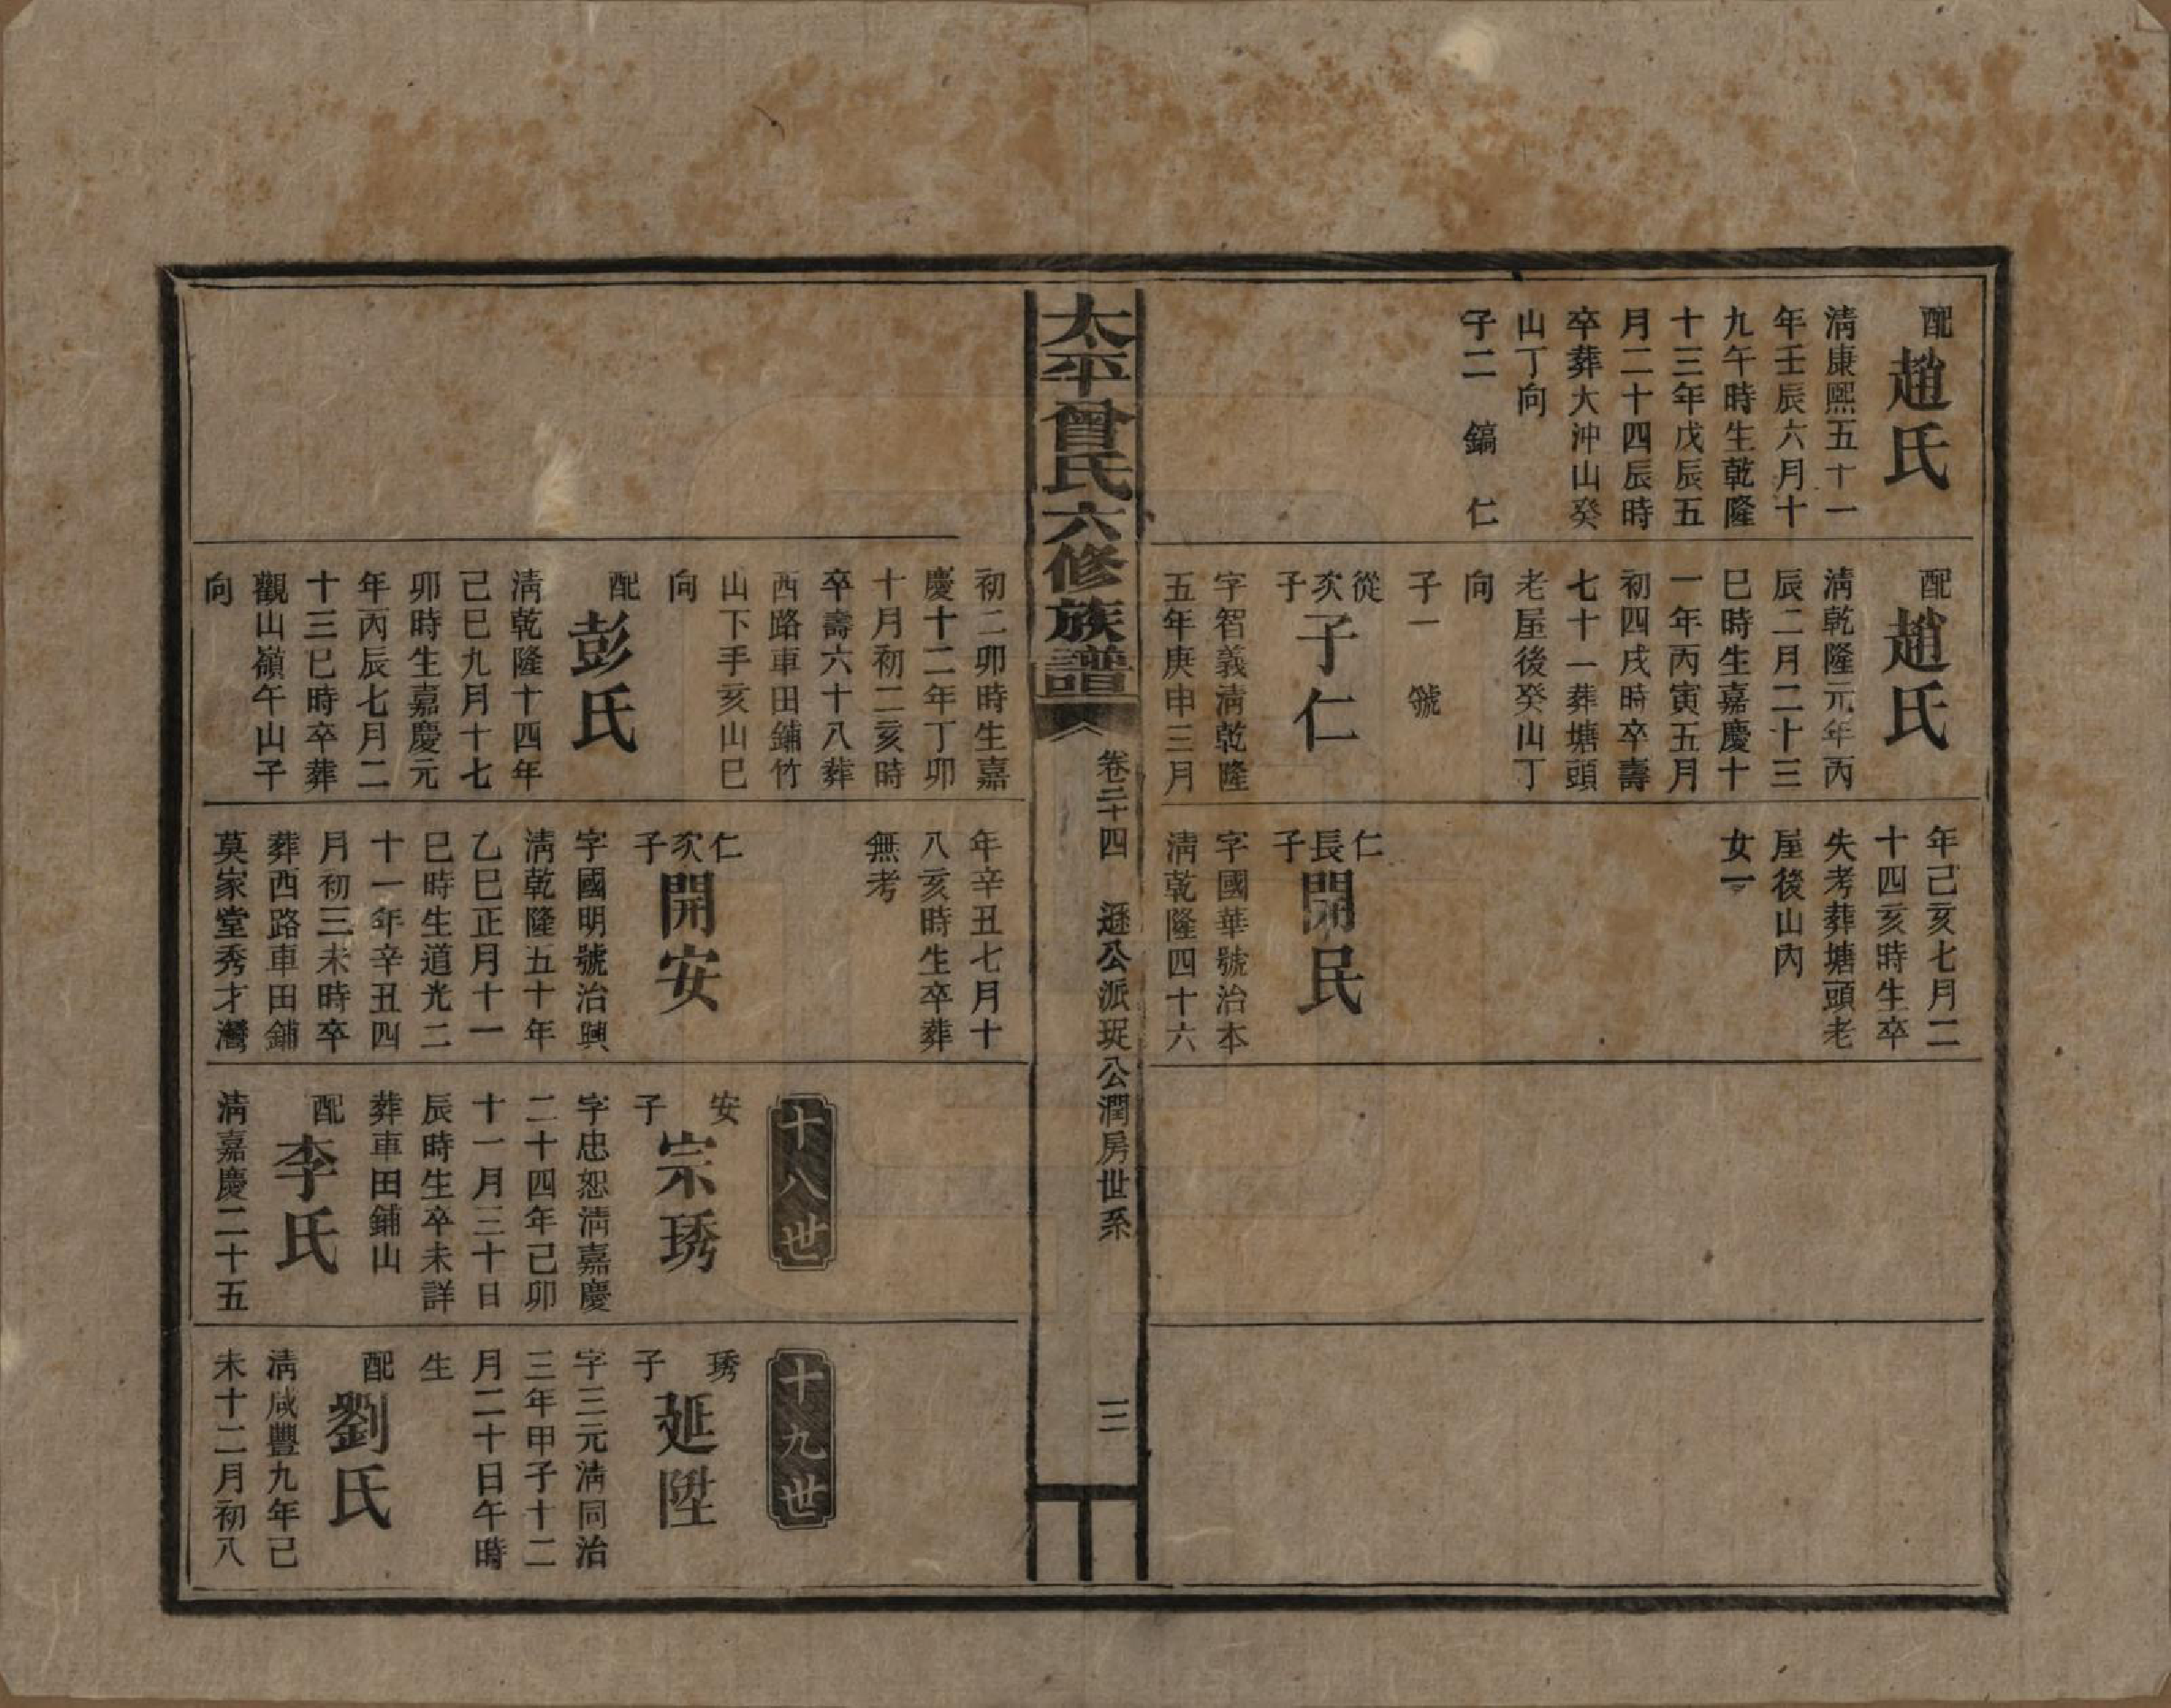 配
趙氏
清康熙五十一
年壬辰六月十
九午時生乾隆
十三年戊辰五
月二十四辰時
卒葬大沖山癸
山丁向
子二 鎬 仁
配
趙氏
清乾隆元年丙
辰二月二十三
巳時生嘉慶十
一年丙寅五月
初四戌時卒壽
七十一葬塘頭
老屋後癸山丁
向
子一 號
從次子
子仁
字智義清乾隆
五年庚申三月
年己亥七月二
十四亥時生卒
失考葬塘頭老
屋後山內
女一
仁長子
開民
字國華號治本
清乾隆四十六
太平曾氏六修族譜
卷三十四 遜公派珽公潤房世系
三
初二卯時生嘉
慶十二年丁卯
十月初二亥時
卒壽六十八葬
西路車田鋪竹
山下手亥山巳
向
配
彭氏
清乾隆十四年
己巳九月十七
卯時生嘉慶元
年丙辰七月二
十三巳時卒葬
觀山嶺午山子
向
年辛丑七月十
八亥時生卒葬
無考
仁次子
開安
字國明號治興
清乾隆五十年
乙巳正月十一
巳時生道光二
十一年辛丑四
月初三未時卒
葬西路車田鋪
莫家堂秀才灣
十八世
安子
宗琇
字忠恕清嘉慶
二十四年己卯
十一月三十日
辰時生卒未詳
葬車田鋪山
配
李氏
清嘉慶二十五
十九世
琇子
延陞
字三元清同治
三年甲子十二
月二十日午時
生
配
劉氏
清咸豐九年己
未十二月初八